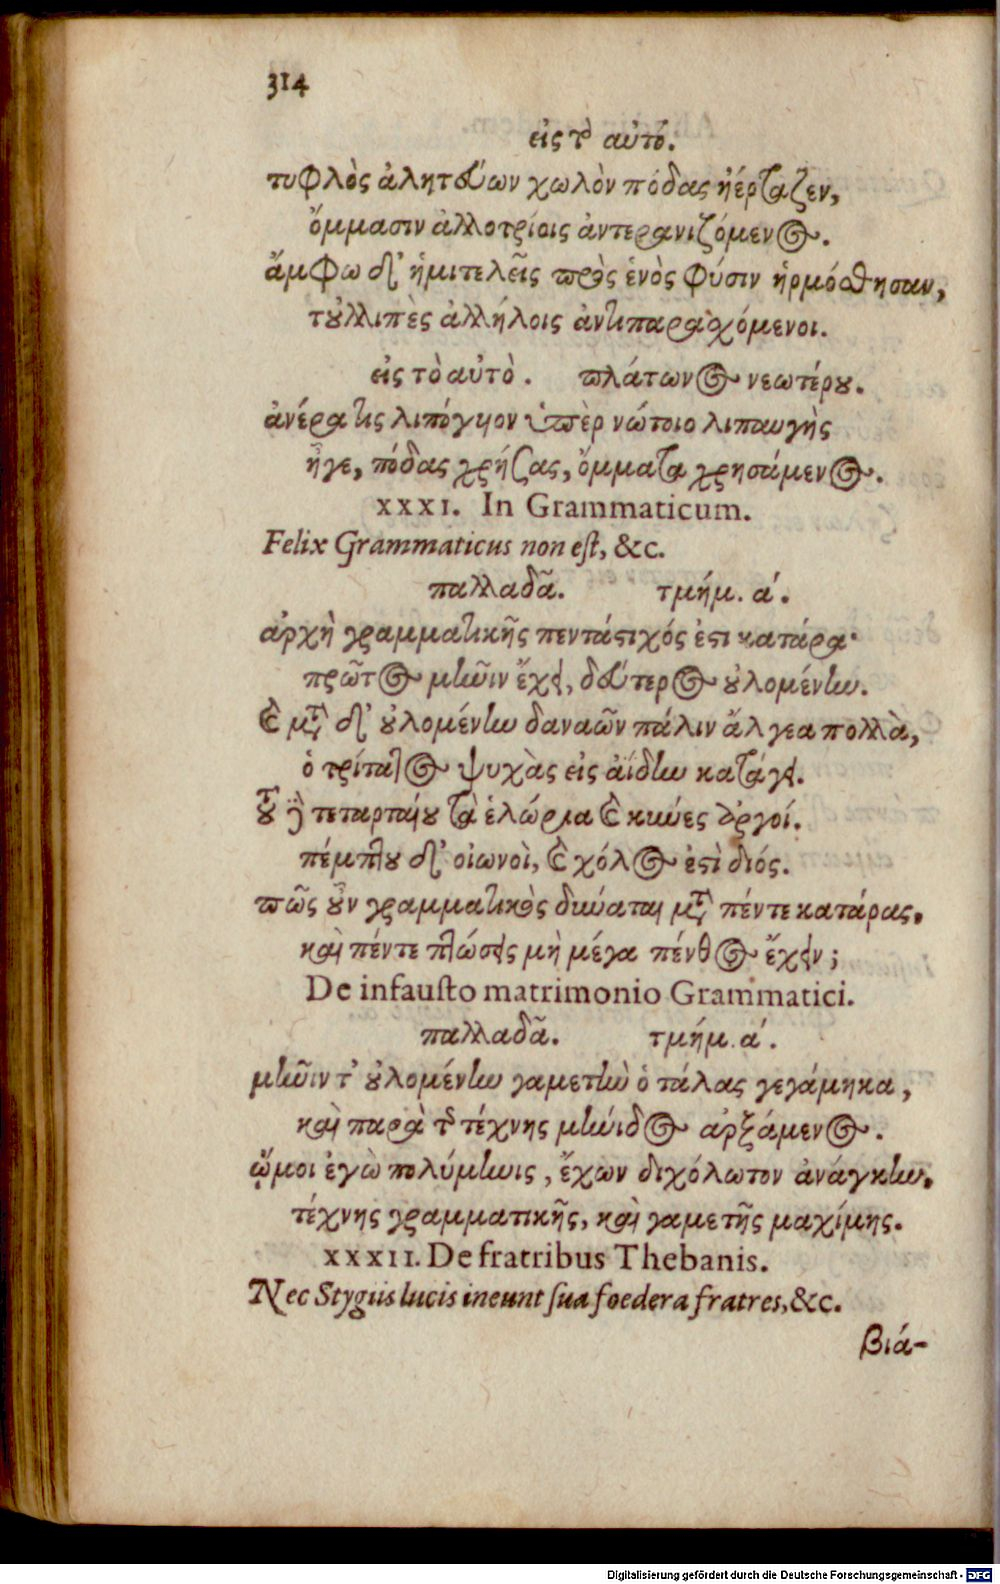 314
εἰς τὸ αὐτό.
τυφλὸς ἀλητεύων χωλὸν πόδας ἠέρταζεν,
ὄμμασιν ἀλλοτρίοις ἀντερανιζόμενος.
ἄμφω δ' ἡμιτελεῖς πρὸς ἑνὸς φύσιν ἡρμόσθησαν,
τοὐλλιπὲς ἀλλήλοις ἀντιπαρασχόμενοι.
εἰς τὸ αὐτὸ. πλάτωνος νεωτέρου.
ἀνέρα τις λιπόγυιον ὑπὲρ νώτοιο λιπαυγὴς
ἦγε, πόδας χρήζας, ὄμματα χρησάμενος.
XXXI. In Grammaticum.
Felix Grammaticus non eſt, &c.
παλλαδᾶ. τμήμ. ά.
ἀρχὴ γραμματικῆς πεντάστιχός ἐστι κατάρα·
πρῶτος μῆνιν ἔχει, δεύτερος οὐλομένην.
καὶ μετὰ δ' οὐλομένην δαναῶν πάλιν ἄλγεα πολλὰ,
ὁ τρίτατος ψυχὰς εἰς ἀίδην κατάγει.
τοῦ δὲ τεταρταίου τὰ ἑλώρια καὶ κύνες ἀργοί.
πέμπτου δ' οἰωνοὶ, καὶ χόλος ἐστὶ διός.
πῶς οὖν γραμματικὸς δύναται μετὰ πέντε κατάρας,
καὶ πέντε πτώσεις μὴ μέγα πένθος ἔχειν;
De infauſto matrimonio Grammatici.
παλλαδᾶ. τμήμ. ά.
μῆνιν τ' οὐλομένην γαμετὴν ὁ τάλας γεγάμηκα,
καὶ παρὰ τῆς τέχνης μήνιδος ἀρξάμενος.
ᾤμοι ἐγὼ πολύμηνις, ἔχων διχόλωτον ἀνάγκην,
τέχνης γραμματικῆς, καὶ γαμετῆς μαχίμης.
XXXII. De fratribus Thebanis.
Nec Stygiis lucis ineunt ſua foedera fratres, &c.
βιά-
Digitalisierung gefördert durch die Deutsche Forschungsgemeinschaft - DFG